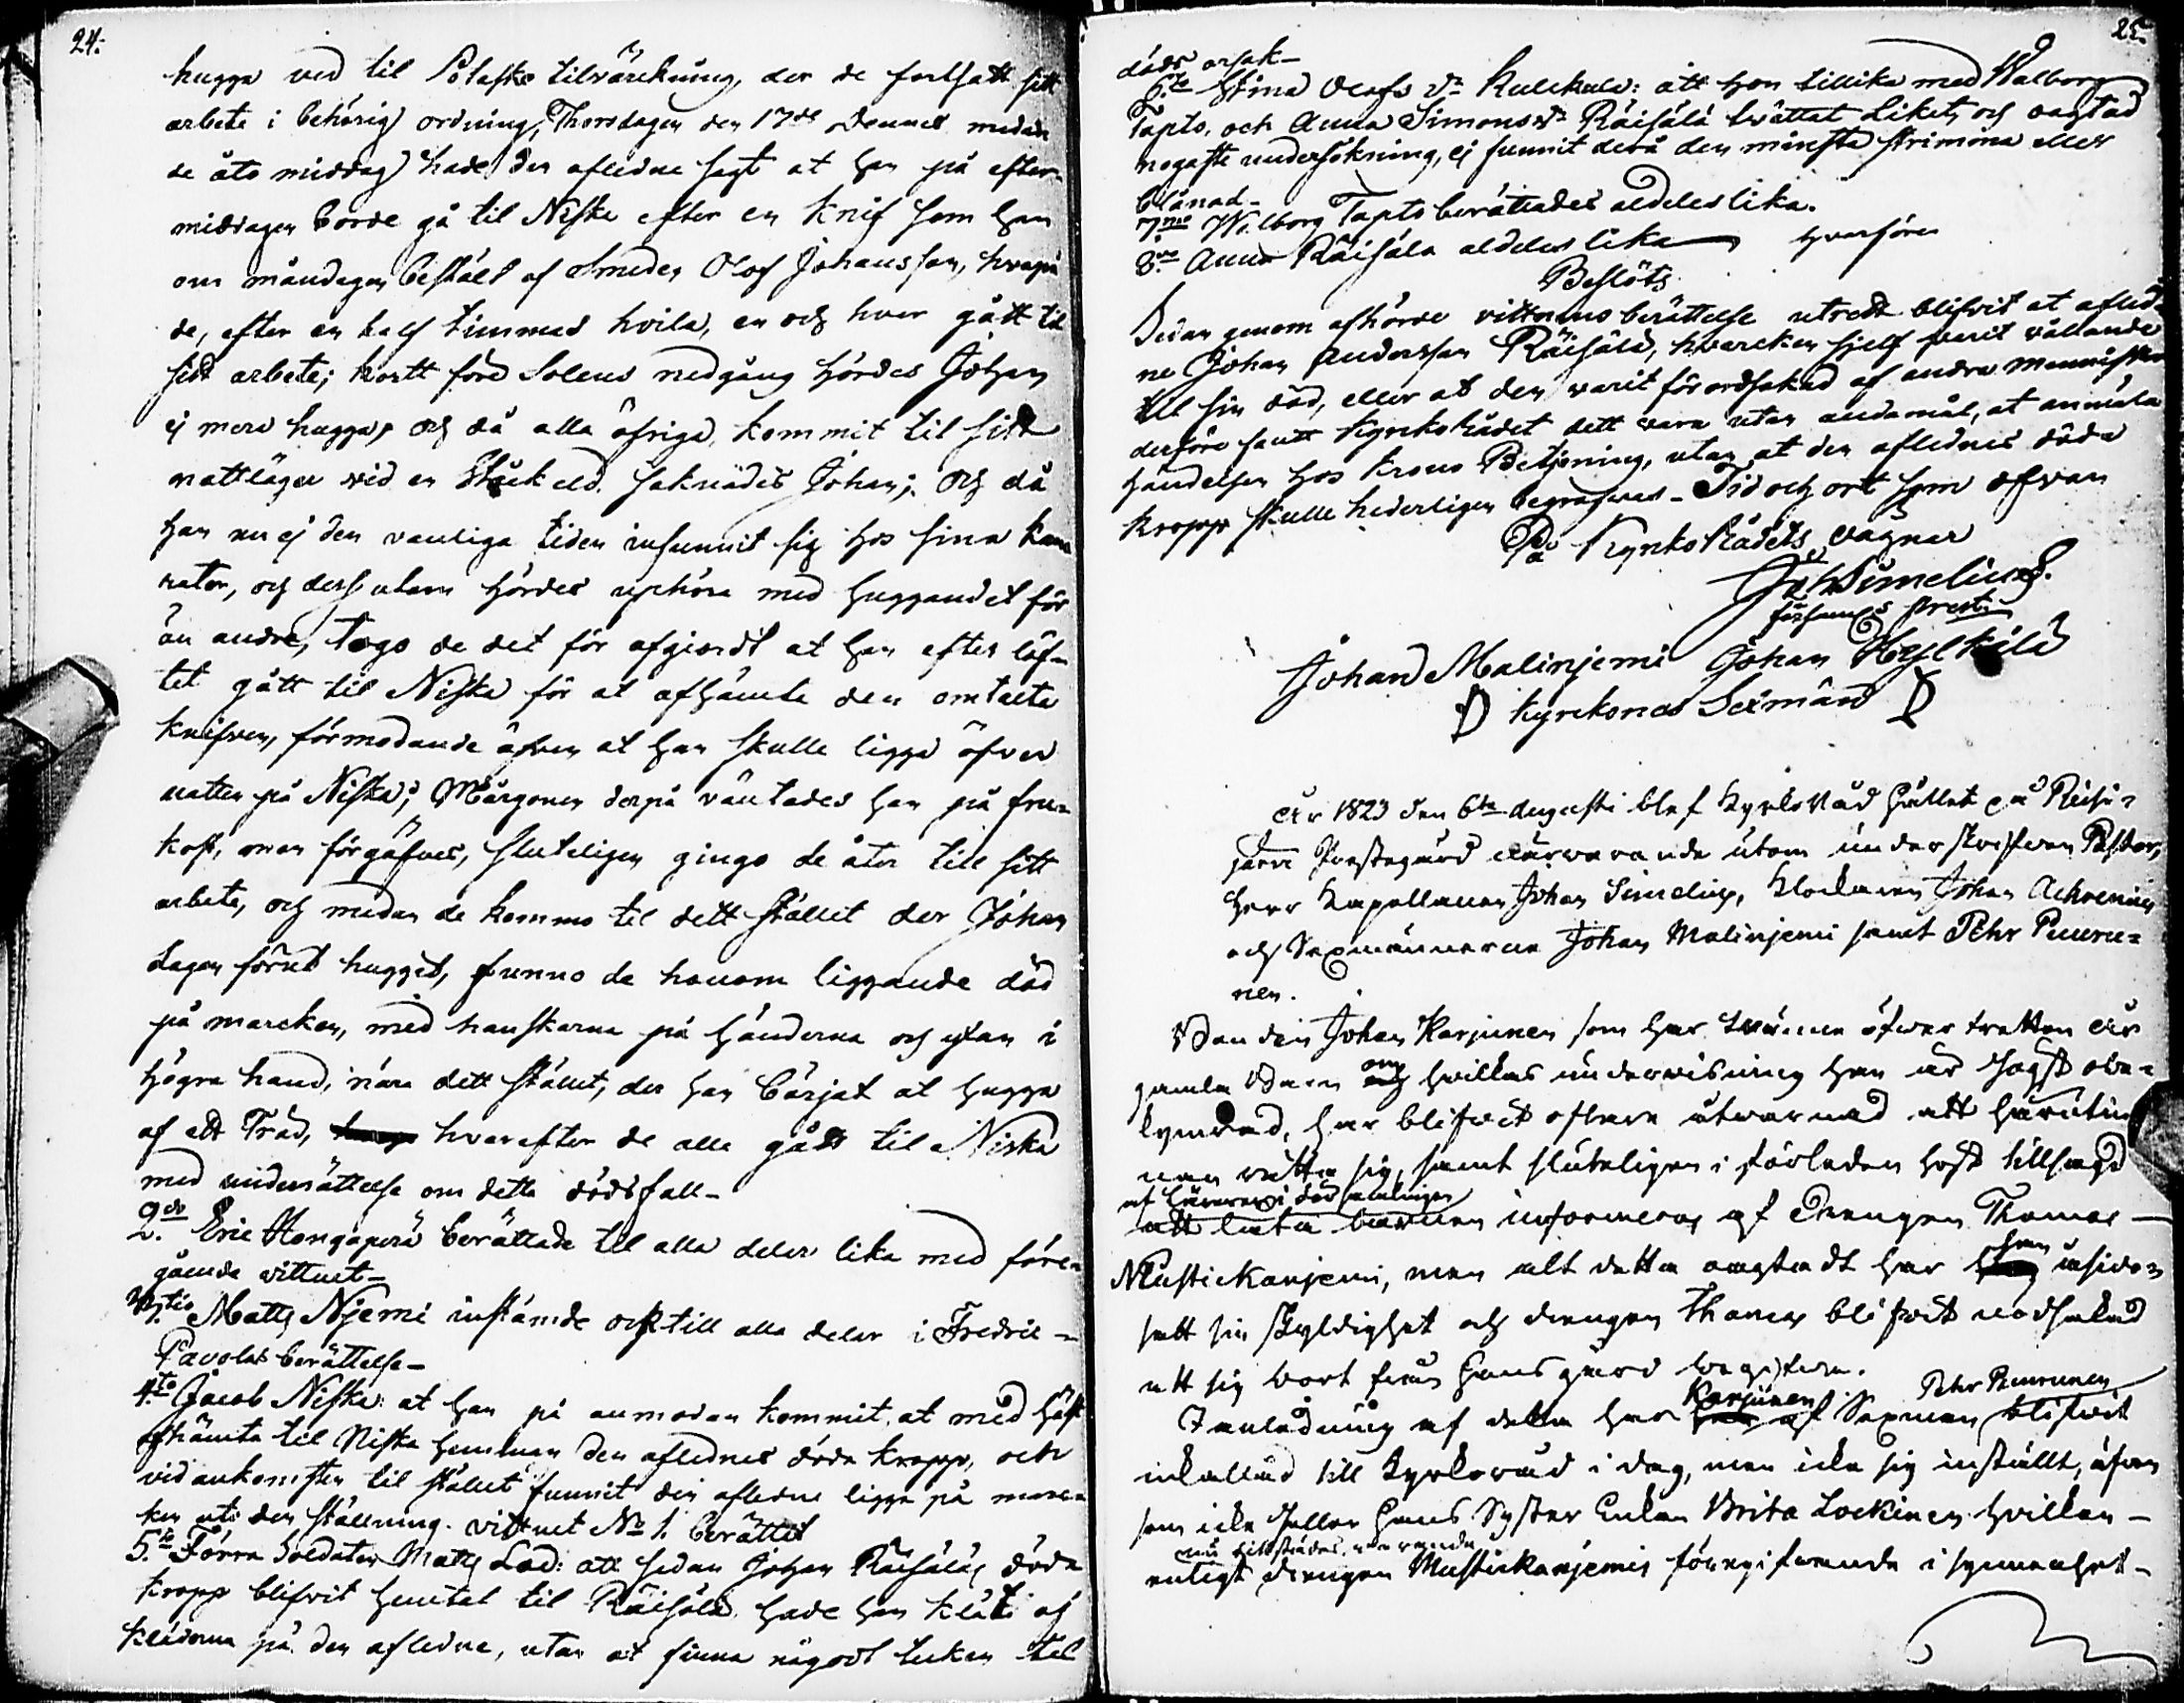 24.
hugga ved til Potaske tilvärckning, der de fortsatt sitt
arbete i behörig ordning, Thorsdagen den 17de Dennes medan
de åto middag hade den aflidne sagt at han på efter-
middagen borde gå til Niska efter en knif som han
om måndagen bestält af Smeden Olof Johansson, hvarpå
de, efter en half timmas hvila, en och hvar gått til
sitt arbete; kortt före Solens nedgång hördes Johan
ej mera hugga, och då alla öfriga, kommit til sitt
nattläger vid en Stäck eld. saknades Johan; och då
han nu ej den vanliga tiden infunnit sig hos sina kam
rater, och dessutom hördes uphöra med huggandet för
än andre, togo de det för afgiordt at han efter löf-
tet gått til Niska för at afhämta den omtalta
knifven, förmodande äfven at han skulle ligga öfver
natten på Niska; Mårgonen derpå väntades han på fru-
kost, men förgäfves, sluteligen gingo de åter till sitt
arbete, och medan de kommo til dett stället der Johan
dagen förut hugget, funno de honom liggande död
på marcken, med hanskarna på händerna och yxan i
högra hand, nära dett stället, der han börjat at hugga
af ett Träd, hvarefter de alla gått til Niska
med underrättelse om detta dödsfall-
2do Eric Hongaperä berättade til alla delar lika med före-
gående vittnet-
3tio Matts Njemi instämde ock till alla delar i Fredric-
Pavolas berättelse-
4to Jacob Niska: at han på anmodan kommit, at med häst
afhämta til Niska hemman den aflidnes döda kropp, och
vid ankomsten til stället funnit den aflidne ligga på marc-
ken uti den ställning vittnet No 1. berättet
5to Förra Soldaten Matts Lod: att sedan Johan Räisäläs döda
kropp blifvit hemtat til Räisälä hade han klädt af
kläderna på den aflidne, utan at finna någodt tecken til
25.
döds orsak-
6to Stina Olofs dr Kulckula: att hon tillika med Walborg
Tapto, och Anna Simonsdr Räisälä tvättat Liket, och oagtad
nogaste undersökning, ej funnit derå den minsta strimma eller
blånad-
7mo Walborg Tapto berättades aldeles lika.
8vo Anna Räisälä aldeles lika hvarföre
Beslöts
Sedan genom afhörde vittnens berättelse utredt blifvit at aflid-
ne Johan Andersson Räisälä, hvarcken sjelf varit vållande
till sin död, eller at den varit förordsakad af andra menniskor
derföre fantt KyrckoRådet dett vara utan ändamål, at anmäla
händelsen hos Krono Betjening, utan at den aflidnes döda
kropp skulle hederligen begrafvas- Tid och ort som ofvan
På KyrckoRådets vägnar
Joh Simelius.
församl:s Prest.
Johan Malinjemi Johan Kylkilä
Kyrckones Sexmän
År 1823 den 6te Augusti blef Kyrko Råd hållet på Reisi-
järvi Prestegård närvarande utom underskrifven Pastor,
Herr Kapellanen Johan Simelius, Klockaren Johan Achrenius
och Sexmännerne Johan Malinjemi samt Pehr Puuru-
nen.
Bonden Johan Karjunen som har tvänne öfver tretton år
gamla Barn om hvilkas undervisning han är högst obe-
kymrad, har blifvit oftare åtvarnad att häruti
nan rätta sig, samt sluteligen i förleden höst tillsagd
af Läraren i
att låta barnen informeras af Drengen Thomas
Mustickanjemi, men alt detta oagtadt har han åsido-
satt sin skyldighet och drengen Thomas blifvit nödsakad
att sig bort från hans gård begifva.
I anledning af detta har Karjunen af Sexman Pehr Puurunen blifvit
inkallad till Kyrkoråd i dag, men icke sig inställt, äfven
som icke heller hans Syster Enkan Brita Lockinen hvilken-
nu tillstädes varande
enligt drengen Mustickanjemis föregifvande i synnerhet-